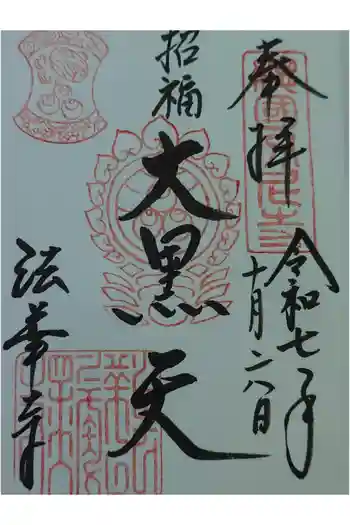 奉拝
令和七年
十月二八日
招福
大黒天
法華寺